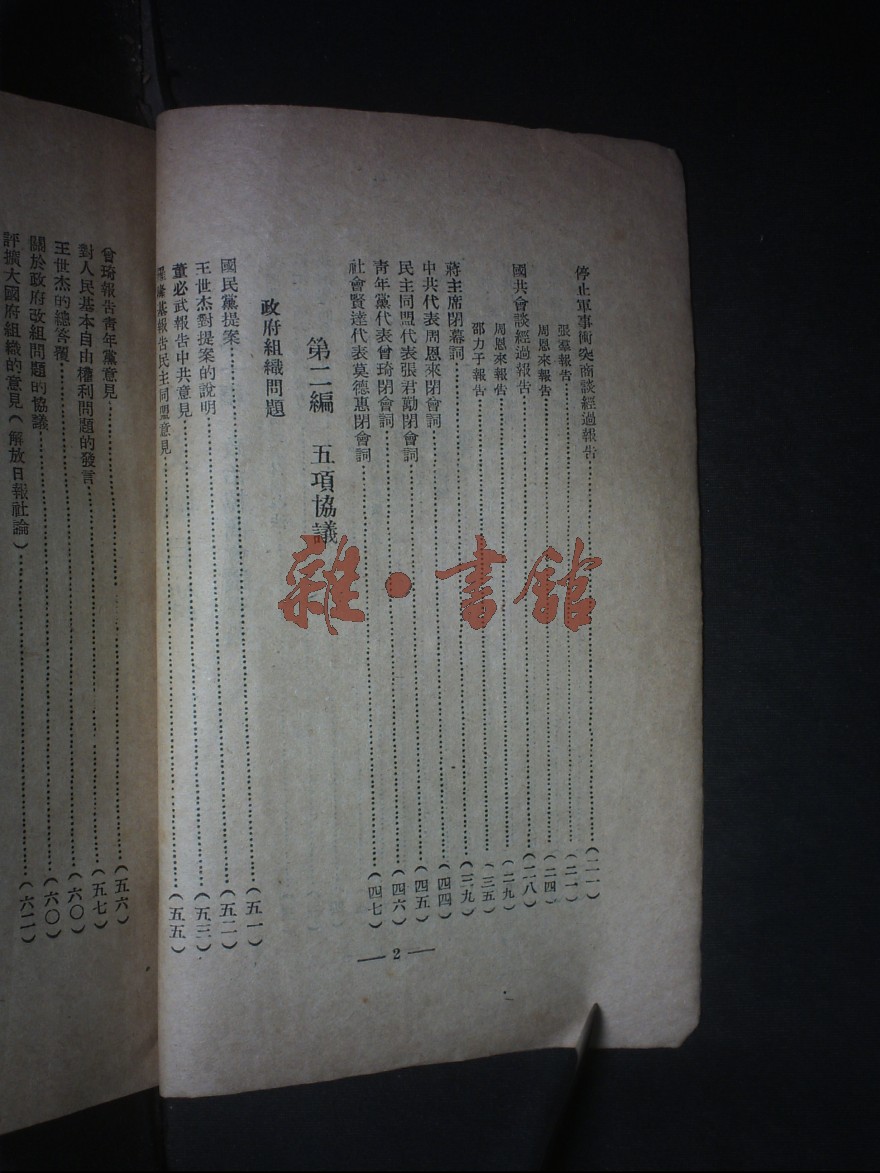 停止軍事衝突商談經過報告……(二一)
張羣報告……(二一)
周恩來報告……(二四)
國共會談經過報告……(二八)
周恩來報告……(二九)
邵力子報告……(三五)
蔣主席閉幕詞……(三九)
中共代表周恩來閉會詞……(四四)
民主同盟代表張君勱閉會詞……(四五)
青年黨代表曾琦閉會詞……(四六)
社會賢達代表莫德惠閉會詞……(四七)
第二編 五項協議
政府組織問題
國民黨提案……(五一)
王世杰對提案的說明……(五二)
董必武報告中共意見……(五三)
羅隆基報告民主同盟意見……(五五)
— 2 —
曾琦報告青年黨意見……(五六)
對人民基本自由權利問題的發言……(五七)
王世杰的總答覆……(六〇)
關於政府改組問題的協議……(六〇)
評擴大國府組織的意見(解放日報社論)……(六二)
雜·書館